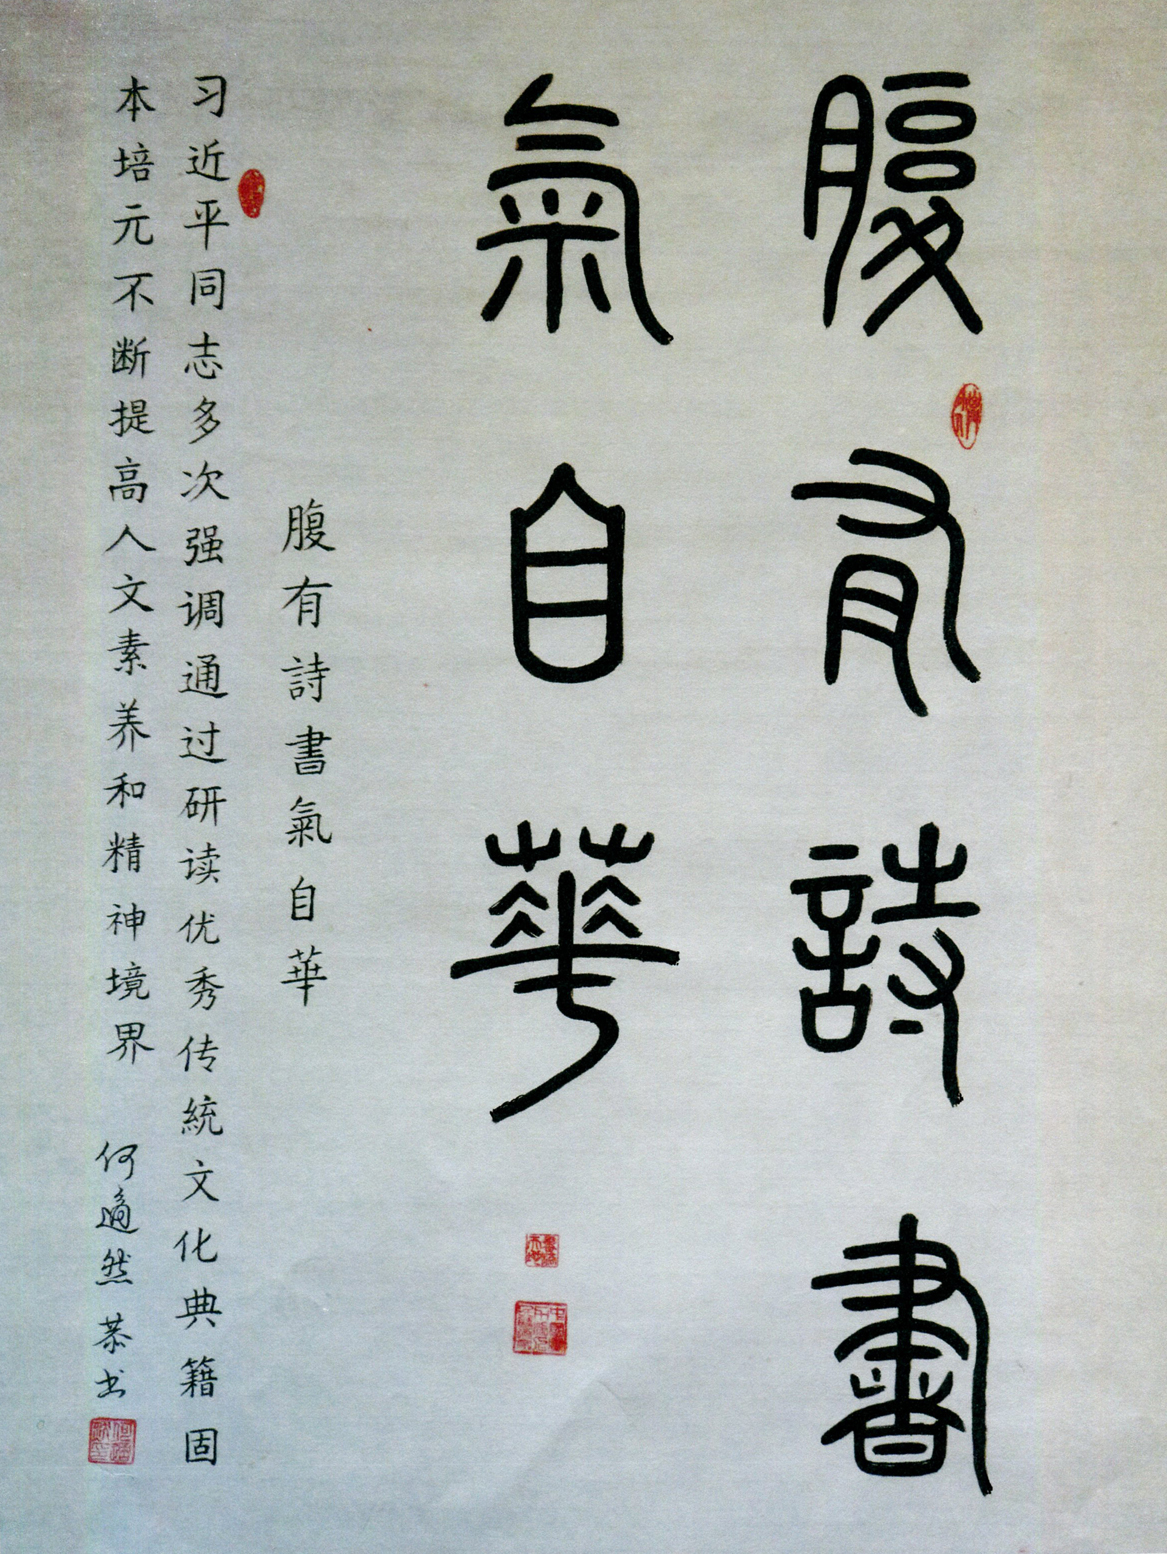 腹有詩書
氣自華
腹有詩書氣自華
习近平同志多次强调通过研读优秀传統文化典籍固
本培元不断提高人文素养和精神境界
何適然恭书